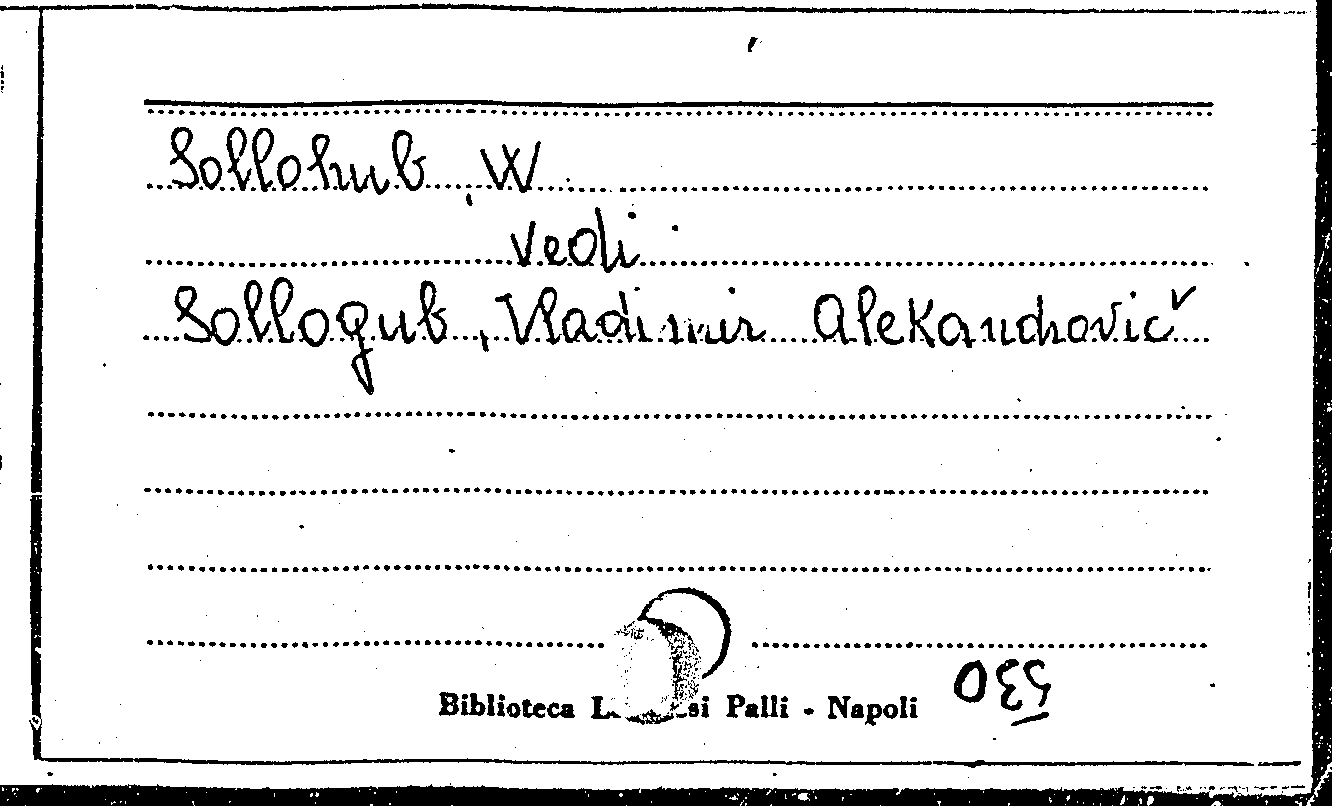 Sollohub, W.
vedi
Sollogub, Vladimir Alekandrovič
Biblioteca Palli - Napoli
530